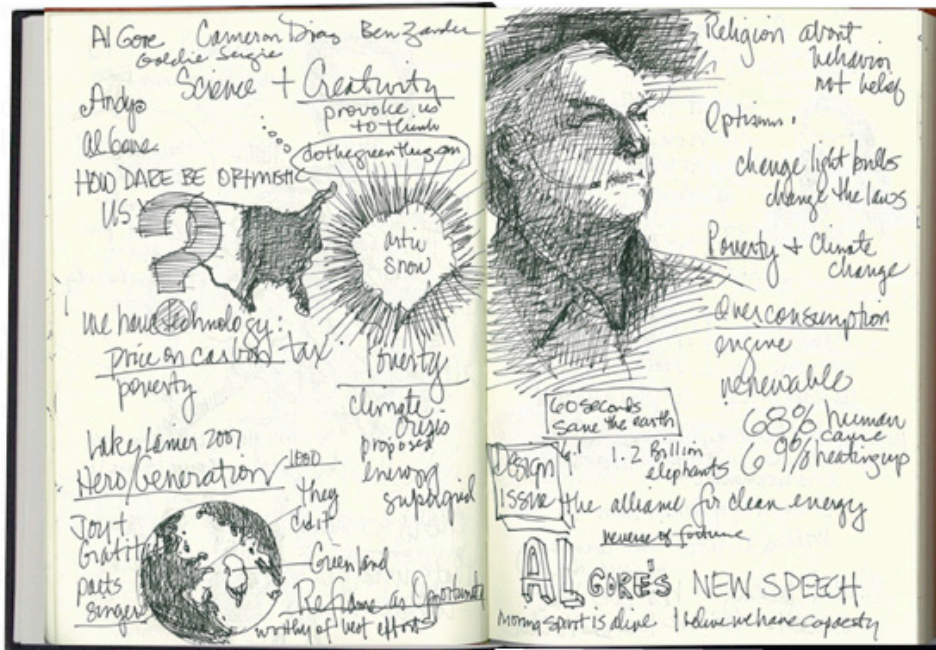 Al Gore Cameron Diaz Ben Zander
Goldie Sergie
Science + Creativity
provoke us
to think
Andy
dothegreenthing.com
HOW DARE BE OPTIMISTIC
US ?
artic
snow
we have technology:
price on carbon tax
poverty
Poverty
climate
crisis
proposed
energy
supergrid
2007
Hero/Generation
1000
they
did it
Joy +
Gratit
poets
singer
Greenland
Reframe as Opportunity
worthy of best efforts
Religion about
behavior
not belief
Optism.
change light bulbs
change the laws
Poverty + Climate
change
Overconsumption
engine
renewable
68% human
cause
69% heating up
60 seconds
save the earth
1.2 Billion
elephants
DESIGN
ISSUE
the alliance for clean energy
reverse of fortune
AL GORE'S NEW SPEECH
moring spirit is alive I believe we have capacity